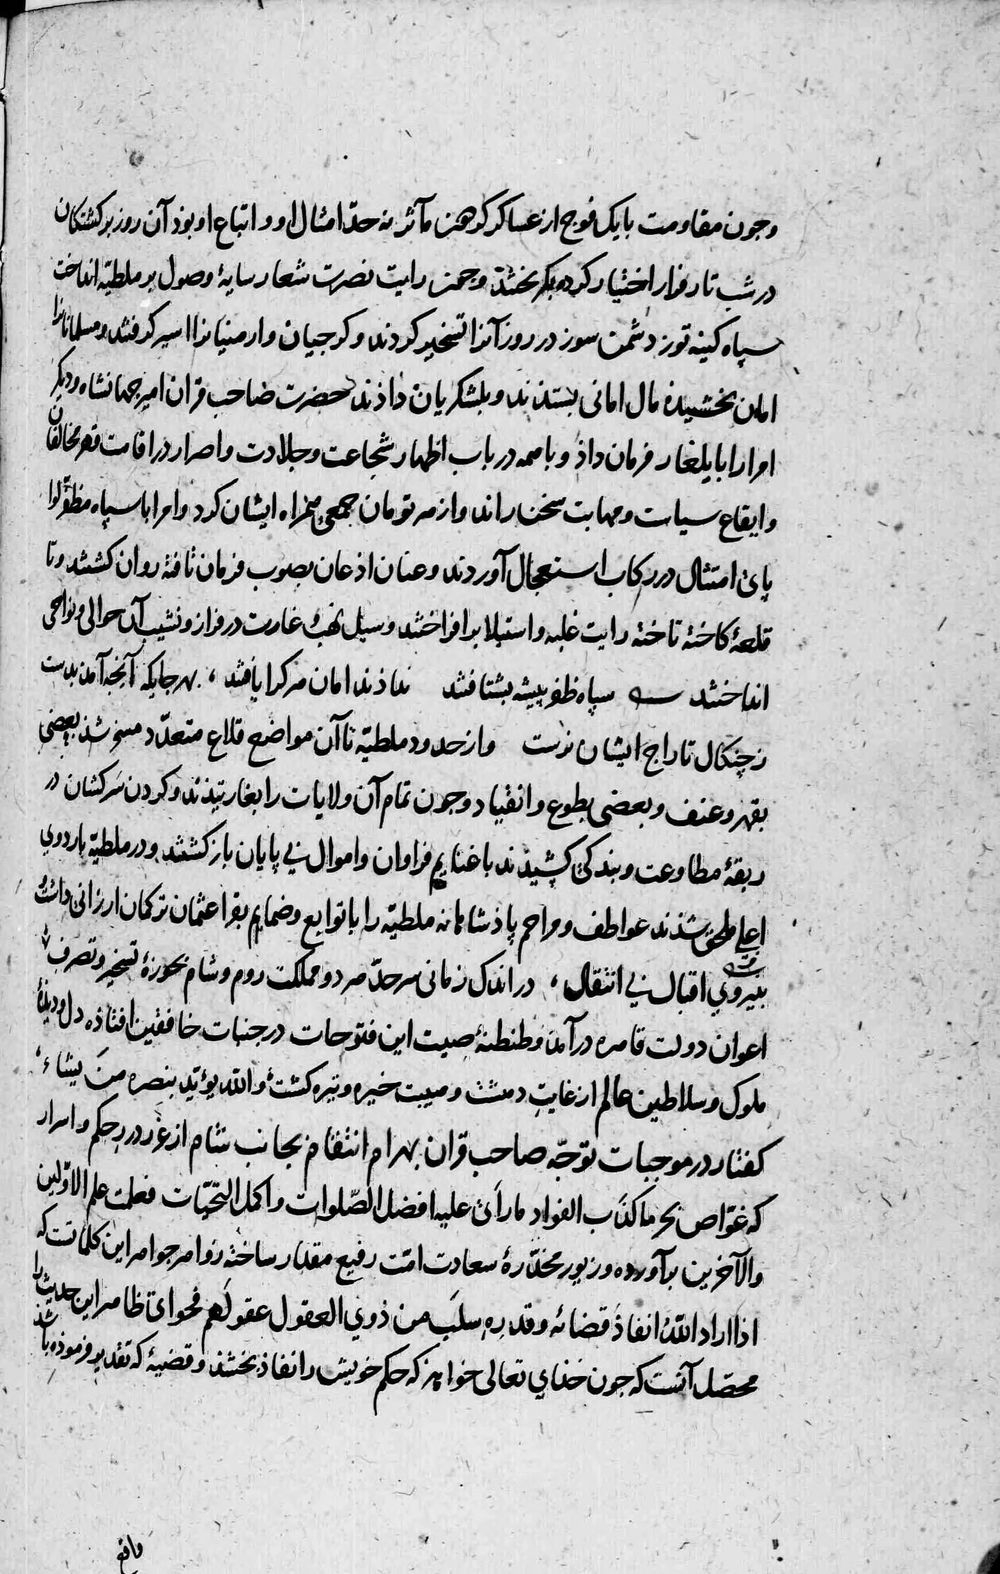 وجون مقاومت با یک فوج از عساکر کردون مآثر نه حد امثال او و اتباع او بوذ آن روز برکشتکان
در شب تار فرار اختیار کرده بکریختند وجون رایت نصرت شعار سایهٔ وصول بر ملطیّه انداخت
سپاه کینه توز دشمن سوز در روز آنرا تسخیر کردند و کرجیان و ارمنیانرا اسیر کرفتند و مسلمانانرا
امان بخشیده مال امانی بستذند و بلشکریان داذند حضرت صاحب قران امیر جهانشاه و دیکر
امرا را بایلغار فرمان داذ و با همه در باب اظهار شجاعت و جلادت و اصرار در اقامت قهر مخالفان
و ایقاع سیاست و مهابت سخن راند و از هر تومان جمعی همراه ایشان کرد و امرا با سپاه مظفّر لوا
پای امتثال در رکاب استعجال آوردند و عنان اذعان بصوب فرمان تافته روان کشتند و تا
قلعهٔ کاخته تاخته رایت غلبه و استیلا بر افراختند و سیل نهب و غارت در فراز و نشیب آن حوالی و نواحی
انداختند سپاه ظفر پیشه بشتافتند نداذند امان هر کرا یافتند ، بهر جایکه آنجه آمد بدست
ز چنکال تاراج ایشان نرست و از حدود ملطیّه تا آن مواضع قلاع متعدّد مسخر شذ بعضی
بقهر و عنف و بعضی بطوع و انقیاد وجون تمام آن ولایات را بغارتیذند و کردن سَرکشان در
ربقهٔ مطاوعت و بندکی کشیذند با غنایم فراوان و اموال بی پایان بازکشتند و در ملطیّه باردوی
اعلی ملحق شذند عواطف و مراحم پاذشاهانه ملطیّه را با توابع و ضمایم بقرا عثمان ترکمان ارزانی داشت و
بنیروی اقبال بی انتقال ، در اندک زمانی سرحدّ هر دو مملکت روم و شام بحوزهٔ تسخیر و تصرف
اعوان دولت قاهره درآمد و طنطنهٔ صیت این فتوحات در جنبات خافقین افتاذه دل و دیدهٔ
ملوک و سلاطین عالم از غایت دهشت و هیبت خیره و تیره کشت و الله یؤیّد بنصره من یشاء
کفتار در موجبات توجّه صاحب قران بهرام انتقام بجانب شام از غرر درر حکم و اسرار
که غوّاص بحر ما کذَب الفواد ما رأی علیه افضل الصّلوات و اکمل التحیّات فعلمت علم الاوّلین
والآخرین برآورده و زیور مخدّرهٔ سعادت امّت رفیع مقدار ساخته زواهر جواهر این کلماتست که
اذا اراد اللهُ انفاذ قضائه و قدره سلَب من ذوی العقول عقولهم فحوای ظاهر این حدیث را
محصّل آنست که جون خذای تعالی خواهذ که حکم خویش را نفاذ بخشذ و قضیهٔ که تقدیر فرموذه باشذ
واقع